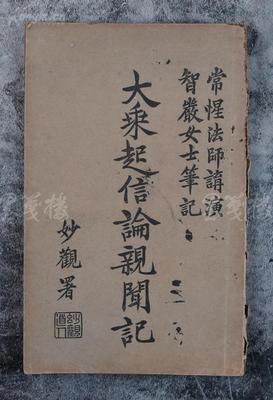 常惺法師講演
智嚴女士筆記
大乘起信論親聞記
妙觀署